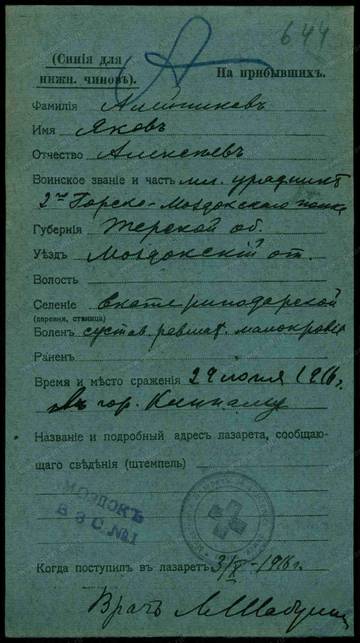 644
(Синія для
нижн. чиновъ).
На прибывшихъ.
Фамилія Алейниковъ
Имя Яковъ
Отчество Алексѣевъ
Воинское званіе и часть мл. урядникъ
2го Горско-Моздокскаго полка
Губернія Терской об.
Уѣздъ Моздокскій от.
Волость
Селеніе Екатериноdarской
(деревня, станица)
Боленъ сустав. ревмат. малокровіе
Раненъ
Время и мѣсто сраженія 29 1916 г.
гор.
Названіе и подробный адресъ лазарета, сообщаю-
щаго свѣдѣнія (штемпель)
МОЗДОКЪ
В З С. №1
Когда поступилъ въ лазаретъ 3/X-1916 г.
Врачъ